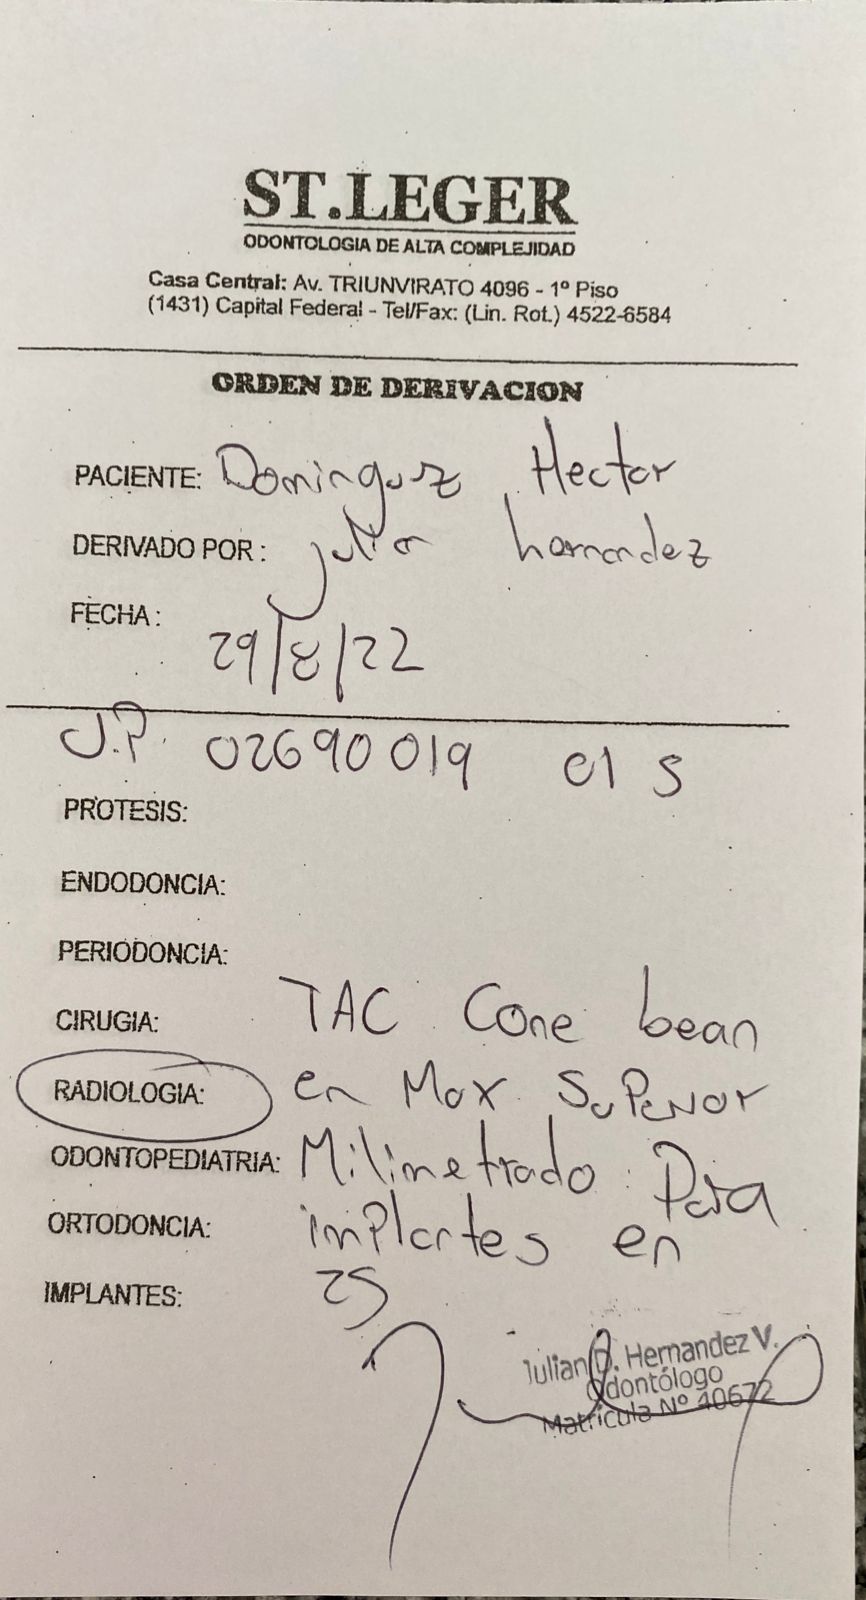 ST.LEGER
ODONTOLOGIA DE ALTA COMPLEJIDAD
Casa Central: Av. TRIUNVIRATO 4096 - 1º Piso
(1431) Capital Federal - Tel/Fax: (Lin. Rot.) 4522-6584
ORDEN DE DERIVACION
PACIENTE: Dominguez Hector
DERIVADO POR: Julian hernandez
FECHA: 29/8/22
J.P. 02690019 01 S
PROTESIS:
ENDODONCIA:
PERIODONCIA:
CIRUGIA: TAC Cone bean
RADIOLOGIA: en Max Superior
ODONTOPEDIATRIA: Milimetrado Para
ORTODONCIA: implantes en
IMPLANTES: 25
Julian D. Hernandez V.
Odontólogo
Matrícula Nº 40672